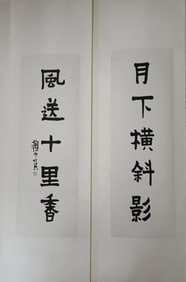 月下橫斜影
風送十里香